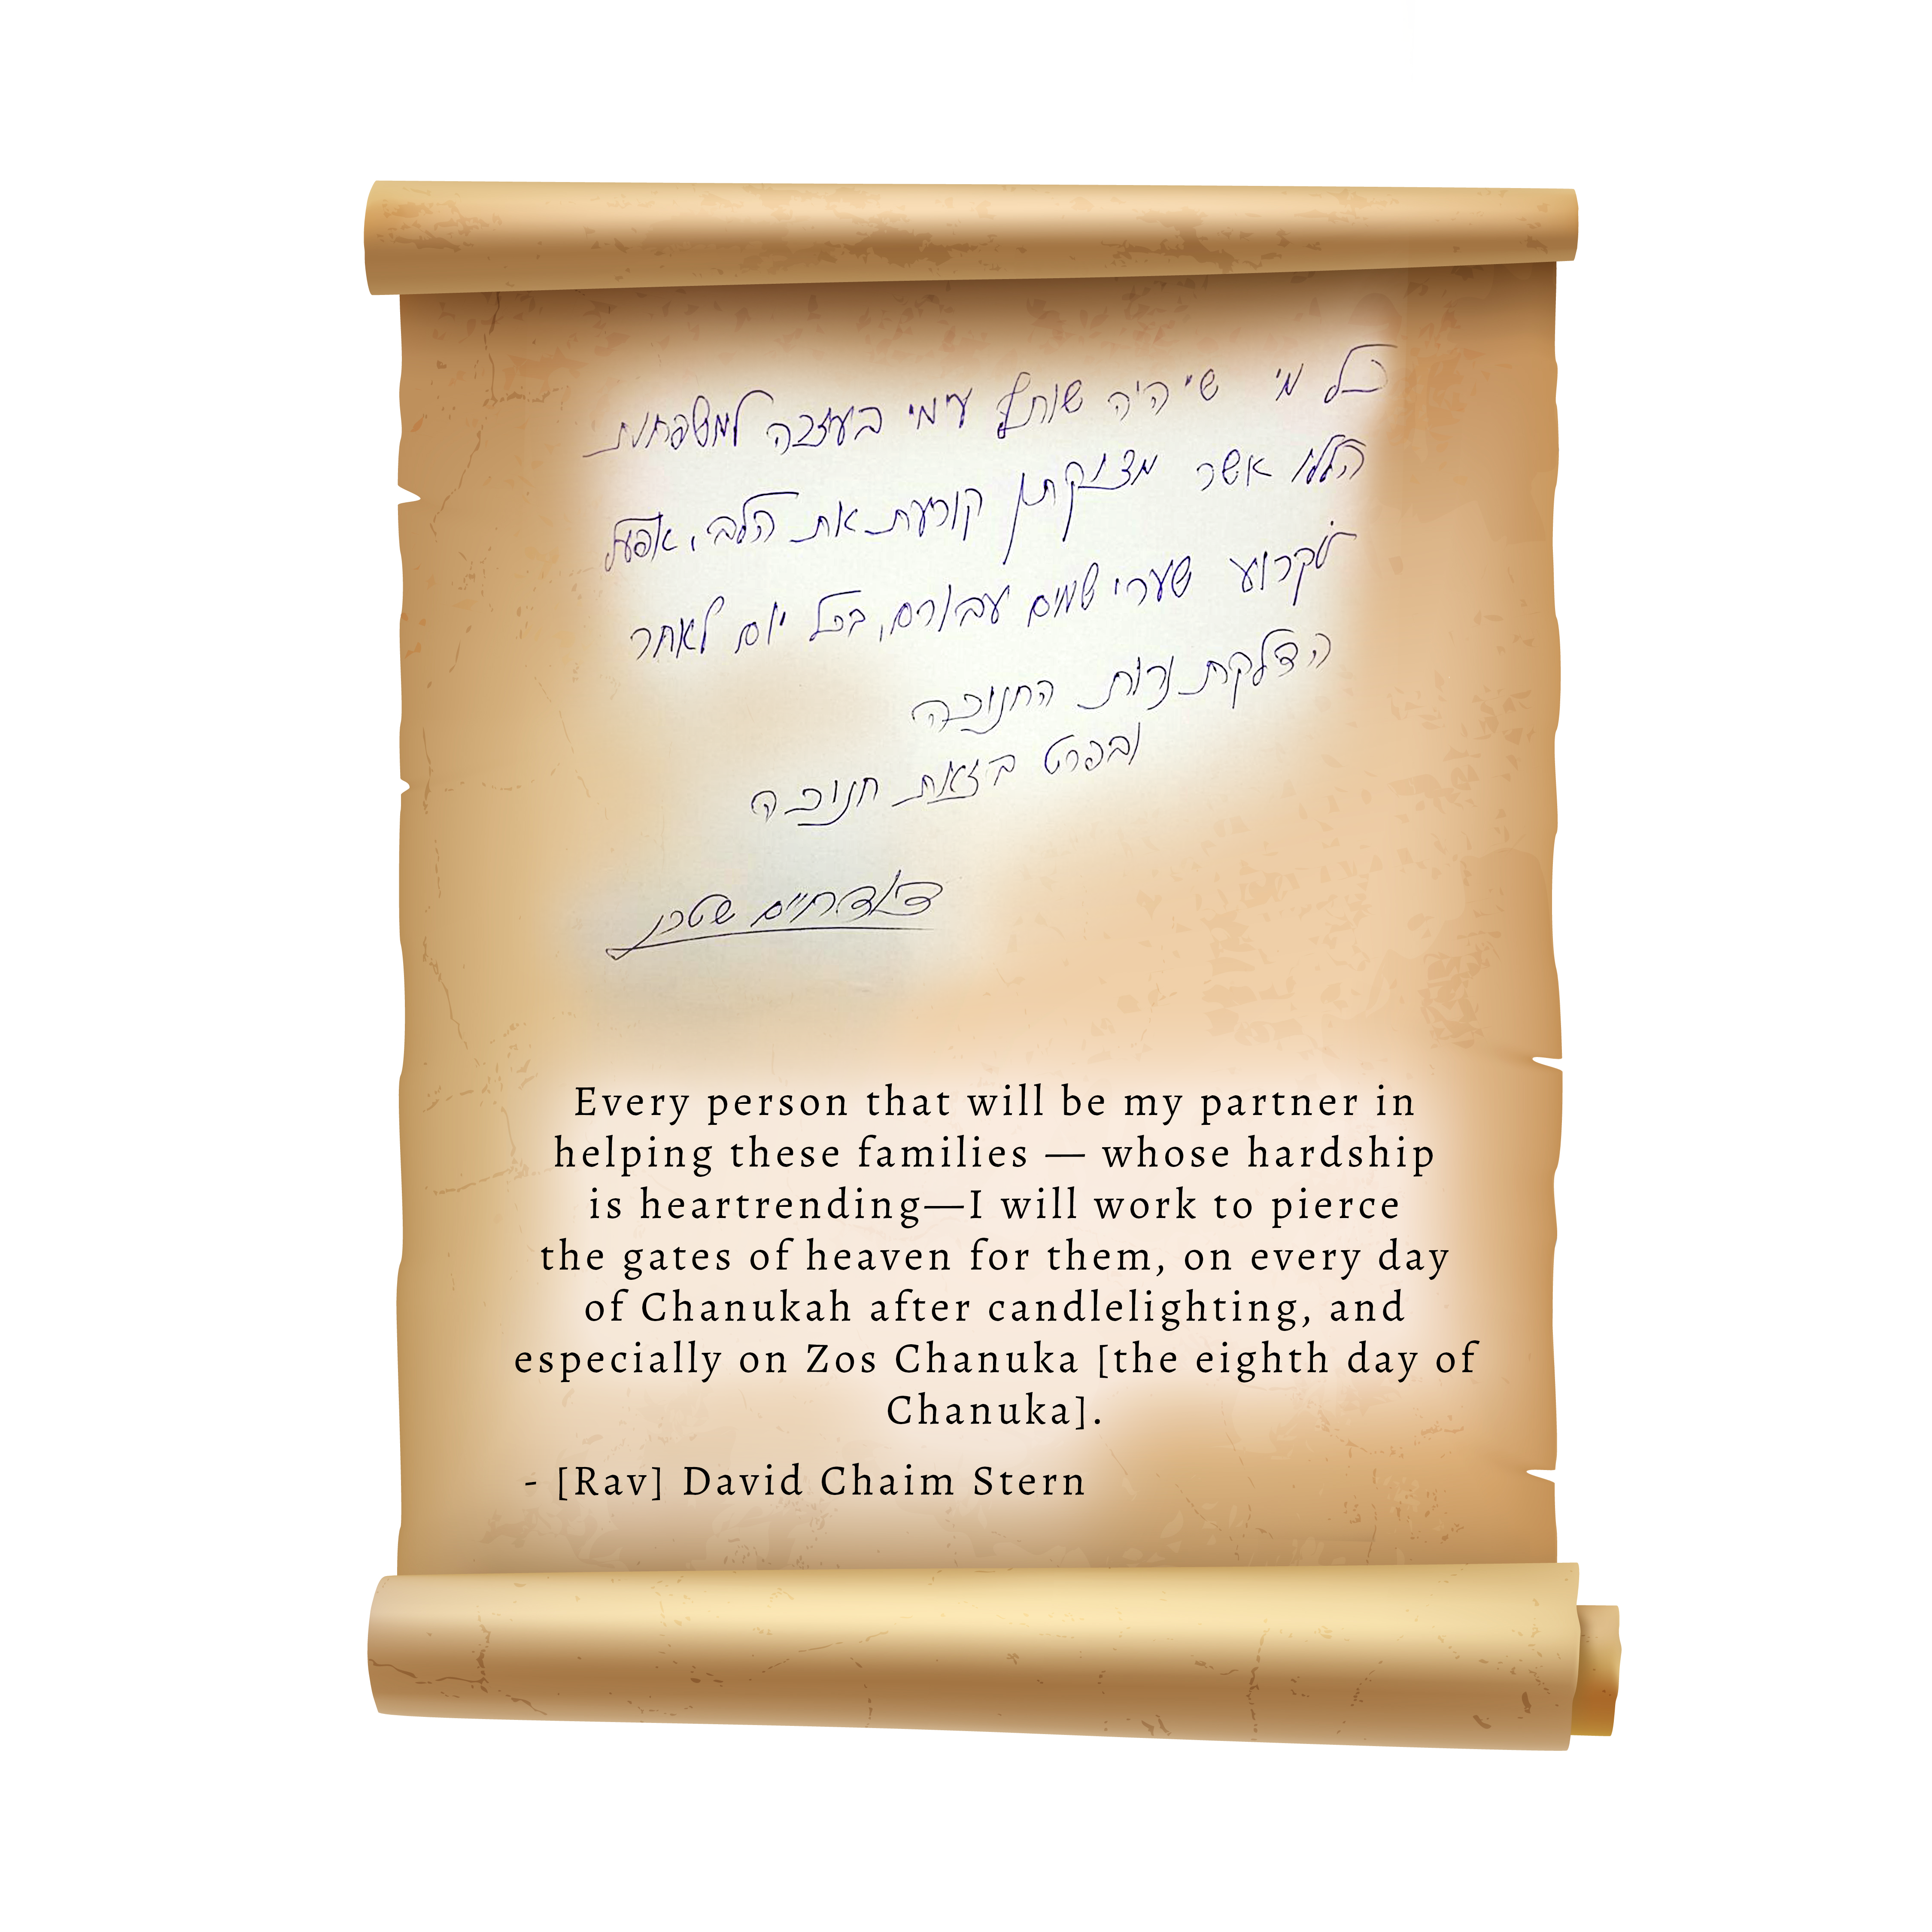 כל מי שיהיה שותף עימי בעזרה למשפחות
הללו אשר מצוקתן קורעת את הלב, אפעל
לקרוע שערי שמים עבורם, בכל יום לאחר
הדלקת נרות החנוכה
ובפרט בזאת חנוכה
דוד חיים שטרן
Every person that will be my partner in
helping these families — whose hardship
is heartrending—I will work to pierce
the gates of heaven for them, on every day
of Chanukah after candlelighting, and
especially on Zos Chanuka [the eighth day of
Chanuka].
- [Rav] David Chaim Stern